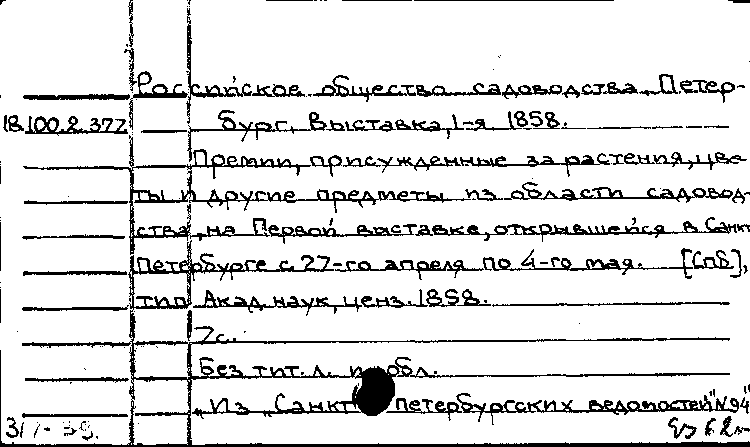 Российское общество садоводства. Петер-
18.100.2.377 бург. Выставка, 1-я. 1858.
Премии, присужденные за растения, цве
ты и другие предметы из области садовод-
ства, на Первой выставке, открывшейся в Санкт
Петербурге с 27-го апреля по 4-го мая. [Спб],
тип. Акад. наук, ценз. 1858.
7с.
Без тит. л. и обл.
„Из „Санкт петербургских ведомостей" N 94"